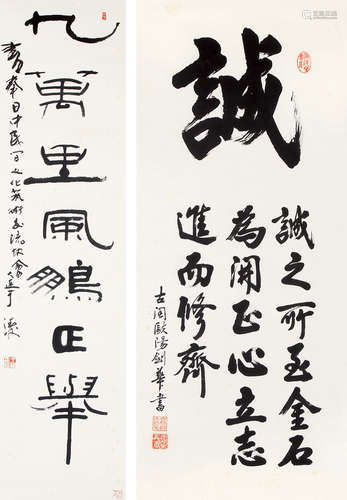 誠
誠之所至金石
為開正心立志
進而修齊
古閩歐陽劍華書
九萬里風鵬正舉